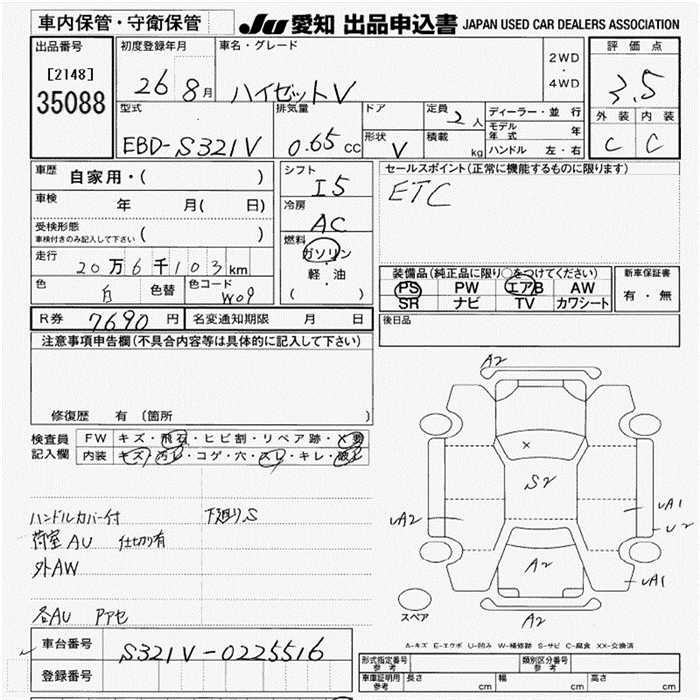 車内保管・守衛保管
JU 愛知 出品申込書 JAPAN USED CAR DEALERS ASSOCIATION
出品番号
[2148]
35088
初度登録年月
26 8月
車名・グレード
ハイゼットV
2WD
・
4WD
評価点
3.5
外装 内装
C C
型式
EBD-S321V
排気量
0.65 CC
ドア
形状
V
定員
2人
積載
kg
ディーラー・並行
モデル年式 年
ハンドル 左・右
車歴
自家用・( )
車検
年 月( 日)
受検形態
車検付きのみ記入して下さい ( )
走行
20万6千103km
色
白
色替
色コード
W09
シフト
I5
冷房
AC
燃料
ガソリン
・
軽・油
( )
セールスポイント(正常に機能するものに限ります)
ETC
装備品(純正品に限り○をつけてください)
PS PW エアB AW
SR ナビ TV カワシート
新車保証書
有・無
R券 7690円
名変通知期限 月 日
後日品
注意事項申告欄(不具合内容等は具体的に記入して下さい)
修復歴 有(箇所 )
検査員
記入欄
FW キズ・飛石・ヒビ割・リペア跡・X要
内装 キズ・汚レ・コゲ・穴・スレ・キレ・破レ
ハンドルカバー付 下廻りS
荷室AU 仕切り有
外AW
各AU Pアセ
A2
X
S2
UA2
UA1
U2
A2
UA1
A2
スペア
A-キズ E-エクボ U-凹み W-補修跡 S-サビ C-腐食 XX-交換済
車台番号
S321V-0225516
登録番号
形式指定番号
参考
類別区分番号
参考
車庫証明用
参考
長さ cm
幅 cm
高さ cm